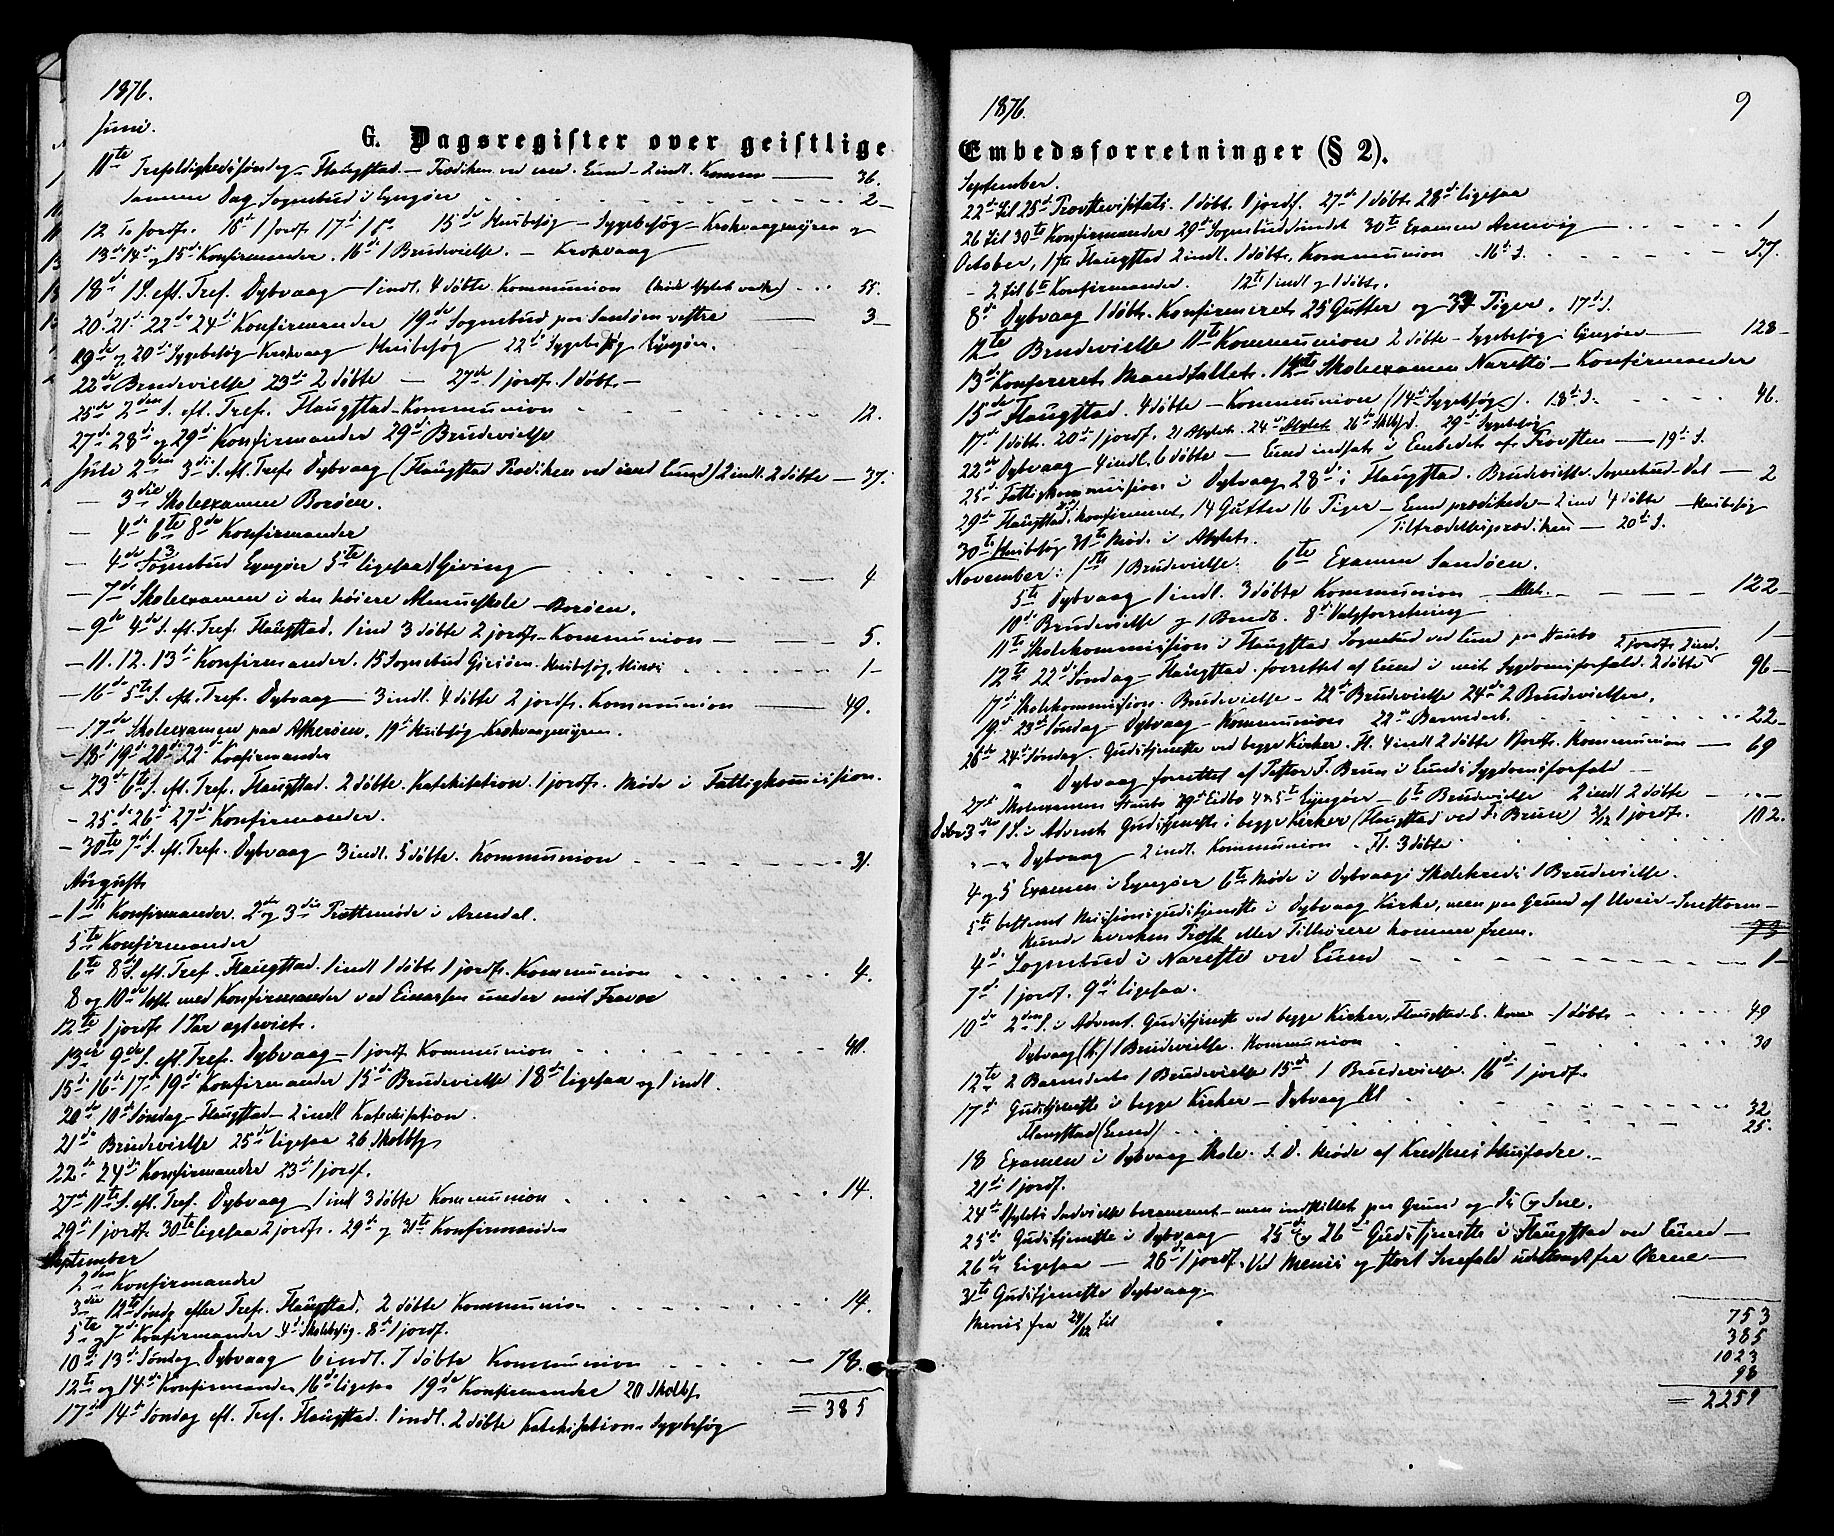 1876.
Juni.
G. Dagsregister over geistlige
11te Trefoldighedssøndag – Flaugstad – Prædiken ved cand. Lund – 2 indl. Komm — 36.
Samme Dag Sognebud i Lyngøer 2 –
12 To jordf. 16de 1 jordf. 17de 15de Huusbesøg – Sygebesøg – Krokvaagmyren
13de 14de og 15de Konfirmander. 16de 1 Brudevielse. – Krokvaag
18de 1 S. eft. Tref. Dybvaag – 1 indl. 4 døbte. Kommunion 55.
20de 21de 22de 24de Konfirmander 19de Sognebud paa Sandøen vestre — 3 –
19de og 20de Sygebesøg Krokvaag Huusbesøg 22de Sygebesøg Lyngøer.
22de Brudevielse 23de 2 døbte — 27de 1 jordf. 1 døbt –
25de 2den S. eft. Tref. Flaugstad – Kommunion 12.
27de 28de og 29de Konfirmander 29de Brudevielse
Jule 2den 3die S. eft. Tref. Dybvaag (Flaugstad Prædiken ved cand Lund) 2 indl. 2 døbte — 37.
– 3die Skoleexamen Borøen.
– 4de 6te 8de Konfirmander
– 4de Sognebud Lyngøer 5te ligesaa Giving 4
– 7de Skoleexamen i den høiere Almueskole – Borøen.
– 9de 4de S. eft. Tref. Flaugstad. 1 ind 3 døbte 2 jordf. – Kommunion — 5.
– 11. 12. 13de Konfirmander. 15 Sognebud Huusbesøg 1 –
– 16de 5te S. eft. Tref. Dybvaag — 3 indl. 4 døbte 2 jordf. Kommunion — 49.
– 17de Skoleexamen paa Askerøen. 19de Huusbesøg Krokvaagmyren.
– 18de 19de 20de 22de Konfirmander
– 23de 6te S. eft. Tref. Flaugstad. 2 døbte. Katekisation. 1 jordf. Møde i Fattigkommission.
– 25de 26de 27de Konfirmander.
– 30te 7de S. eft. Tref. Dybvaag 3 indl. 5 døbte. Kommunion 31.
August
– 1ste Konfirmander. 2de og 3die Provstemøde i Arendal.
5te Konfirmander
6te 8de S. eft. Tref. Flaugstad. 1 indl 1 døbt. 1 jordf. Kommunion 4.
8 og 10de med Konfirmander ved Einarsen under mit Fravær
12te 1 jordf. 1 Par ægteviet.
13de 9de S. eft. Tref. Dybvaag – 1 jordf. Kommunion 40.
15de 16de 17de 19de Konfirmander 15de Brudevielse 18de ligesaa og 1 indl.
20de 10de Søndag – Flaugstad – 2 indl Katekisation.
21de Brudevielse 25de ligesaa 26 Skolbsg
22de 24de Konfirmander 23de 1 jordf.
27de 11te S. eft. Tref. Dybvaag 1 indl 3 døbte Kommunion 14.
29de 1 jordf. 30te ligesaa 2 jordf. 29de og 31te Konfirmander
September
2den Konfirmander
3die 12te Sønd. efter Tref. Flaugstad. 2 døbte Kommunion 14.
5te og 7de Konfirmander 4de Skolebesøg. 8de 1 jordf.
10de 13de Søndag Dybvaag 6 indl. 7 døbte Kommunion 78.
12te og 14de Konfirmander 16de ligesaa 19de Konfirmander 20 Skolbs
17de 14de Søndag eft. Tref. Flaugstad. 1 indl. 2 døbte Katekisation – Sygebesøg
= 385
1876. 9
Embedsforretninger (§ 2).
September.
22de til 25de Provstevisitats. 1 døbt. 1 jordf. 27de 1 døbt. 28de ligesaa
26 til 30te Konfirmander 29de Sognebud 30te Examen Arnevig 1
October, 1ste Flaugstad 2 indl. 1 døbt. Kommunion – 16de S. 37.
– 2 til 6te Konfirmander. 12te 1 indl og 1 døbt.
8de Dybvaag 1 døbt. Konfirmeret 25 Gutter og 37 Piger. 17de S.
12te Brudevielse 11te Kommunion 2 døbte – Sygebesøg i Lyngøer — 128 –
13de Konfereret Mandtallet. 12te Skoleexamen Narestø – Konfirmander
15de Flaugstad. 4 døbte – Kommunion (14de Sygebesøg). 18de S. 46.
17de 1 døbt. 20de 1 jordf. 21 Asylet. 24de Asylet 26de Skolbsg. 29de Sygebesøg
22de Dybvaag 4 indl. 6 døbte – Lund indsat i Embedet af Provsten — 19de S.
25de Fattigkommission i Dybvaag 28de i Flaugstad. Brudevielse. Sognebud Dal — 2
29de Flaugstad, konfirmeret 14 Gutter 16 Piger – Lund prædikede – 2 ind 4 døbte – Huusbesøg
30te Huusbesøg 31te Møde i Asylet. (Tiltrædelsesprædiken) – 20de S.
November: 1ste 1 Brudevielse. 6te Examen Sandøen.
5te Dybvaag 1 indl. 3 døbte Kommunion 122 –
10de Brudevielse og 1 8de Valgforretning
11te Skolekommission i Flaugstad Sognebud ved Lund paa Staubø 2 jordf. 2 ind. 1 –
12te 22de Søndag – Flaugstad. forrettet af Lund i mit Sygdomsforfald. 2 døbte 96 –
17de Skolekommission. Brudevielse – 22de Brudevielse 24de 2 Brudevielser.
19de 23de Søndag – Dybvaag – Kommunion 22de Barnedaab. 22 –
26de 24de Søndag. Gudstjeneste ved begge Kirker. Fl. 4 indl 2 døbte 1 jordf. Kommunion — 69
" Dybvaag forrettet af Pastor F. Bruun i Lunds Sygdomsforfald —
27de Skoleexamen Staubø 29de Eidbo 4 & 5te Lyngøer – 6te Brudevielse 2 indl 2 døbte
Decbr 3die 1 S. i Advent Gudstjeneste i begge Kirker (Flaugstad ved F. Bruun) 2/12 1 jordf. 102.
" – " Dybvaag 2 indl. Kommunion. Fl. 3 døbte
4 og 5 Examen i Lyngøer 6te Møde i Dybvaags Skolekreds 1 Brudevielse.
5te bestemt Missionsgudstjeneste i Dybvaag Kirke, men paa Grund af Uveir – Snestorm –
kunde hverken Præst eller Tilhørere komme frem. 73
4de Sognebud i Narestø ved Lund 1 –
7de 1 jordf. 9de ligesaa.
10de 2den S. i Advent. Gudstjeneste ved begge Kirker, Flaugstad – L. Kom – 1 døbt 49
Dybvaag (K.) 1 Brudevielse. Kommunion 30
12te 2 Barnedaab 1 Brudevielse 15de 1 Brudevielse. 16de 1 jordf.
17de Gudstjeneste i begge Kirker – Dybvaag Kl 32
Flaugstad (Lund) 25.
18 Examen i Dybvaag Skole. S. D. Møde af Kredsens Husfædre. –
21de 1 jordf.
24de Asylets Indvielse berammet – men indstillet paa Grund og Is og Sne.
25de Gudstjeneste i Dybvaag 25de og 26de Gudstjeneste i Flaugstad ved Lund –
26de Ligesaa — 26de 1 jordf. Ved Menis og stort Snefald udestængt fra Øerne –
31te Gudstjeneste Dybvaag.
Menis fra 24/12 til
753
385
1023
98
= 2259